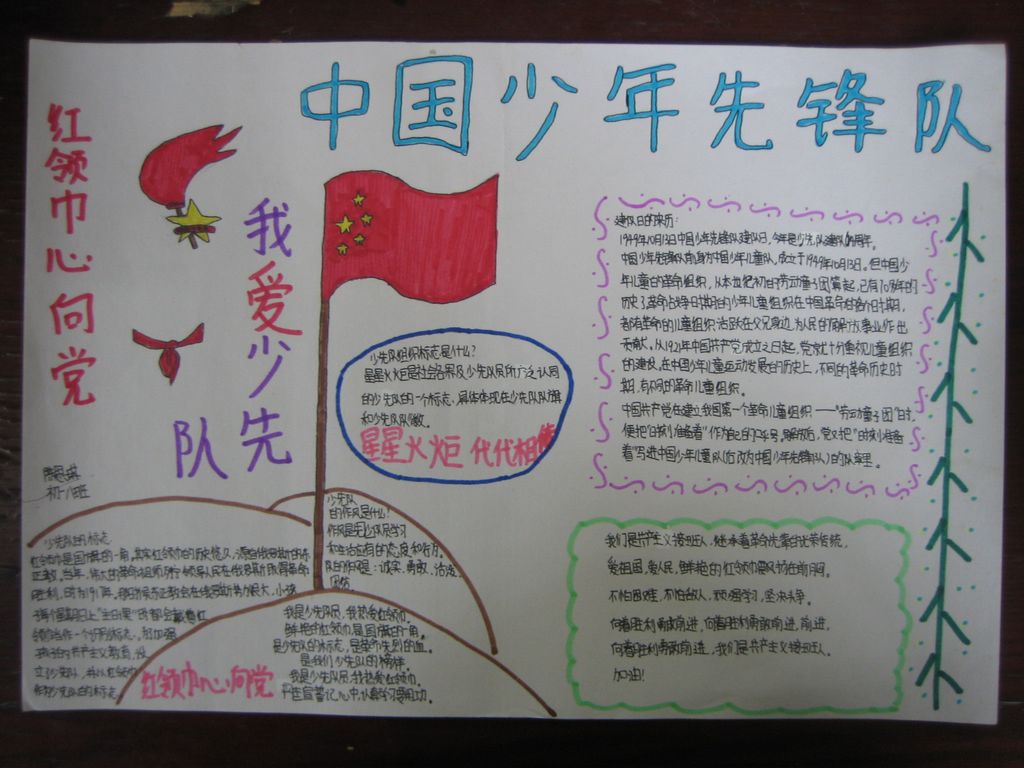 中国少年先锋队
红领巾心向党
我爱少先队
初一八班
建队日的来历:
1949年10月13日中国少年先锋队建队日,今年是少先队建队
中国少年先锋队前身为中国少年儿童队,成立于1949年10月13日。但中国少
年儿童的革命组织,从本世纪初的劳动童子团算起,已有70多年的
历史了革命战争日期的少年儿童组织在中国革命的各个时期,
都有革命的儿童组织活跃在父兄身边,为人民的解放事业作出
贡献。从1921年中国共产党成立之日起,党就十分重视儿童组织
的建设,在中国少年儿童运动发展的历史上,不同的革命历史时
期,有不同的革命儿童组织。
中国共产党在建立我国第一个革命儿童组织——"劳动童子团"时,
便把"时刻准备着"作为自己的口号。解放后,党又把"时刻准备
着"写进中国少年儿童队(后改为中国少年先锋队)的队章里。
少先队组织标志是什么?
星星火炬是社会各界及少先队员所广泛认同
的少先队的一个标志,具体体现在少先队队旗
和少先队队徽。
星星火炬 代代相传
少先队
的作风是什么!
作风是无少队员学习
和生活应有的态度和行为。
队的作风是:诚实、勇敢、活泼、
团结
少先队的标志
红领巾是国旗的一角,其实红领巾的历史意义,源自俄罗斯的东
正教,当年,伟大的革命
胜利,时为1917年,
领巾当作一个
孩子的共产主义教育,设
立少先队,并以红领巾
作为少先队的标志。
红领巾心向党
我是少先队员,我热爱红领巾。
鲜艳的红领巾,是国旗的一角。
是少先队的标志,是革命先烈的血。
是我们少先队的榜样。
我是少先队员,我热爱红领巾。
宣誓记心中,认真学习要用功。
我们是共产主义接班人,继承着革命先辈的光荣传统,
爱祖国,爱人民,鲜艳的红领巾飘扬在前胸。
不怕困难,不怕敌人,顽强学习,坚决斗争。
向着胜利勇敢前进,向着胜利勇敢前进,前进,
向着胜利勇敢前进,我们是共产主义接班人。
加油!